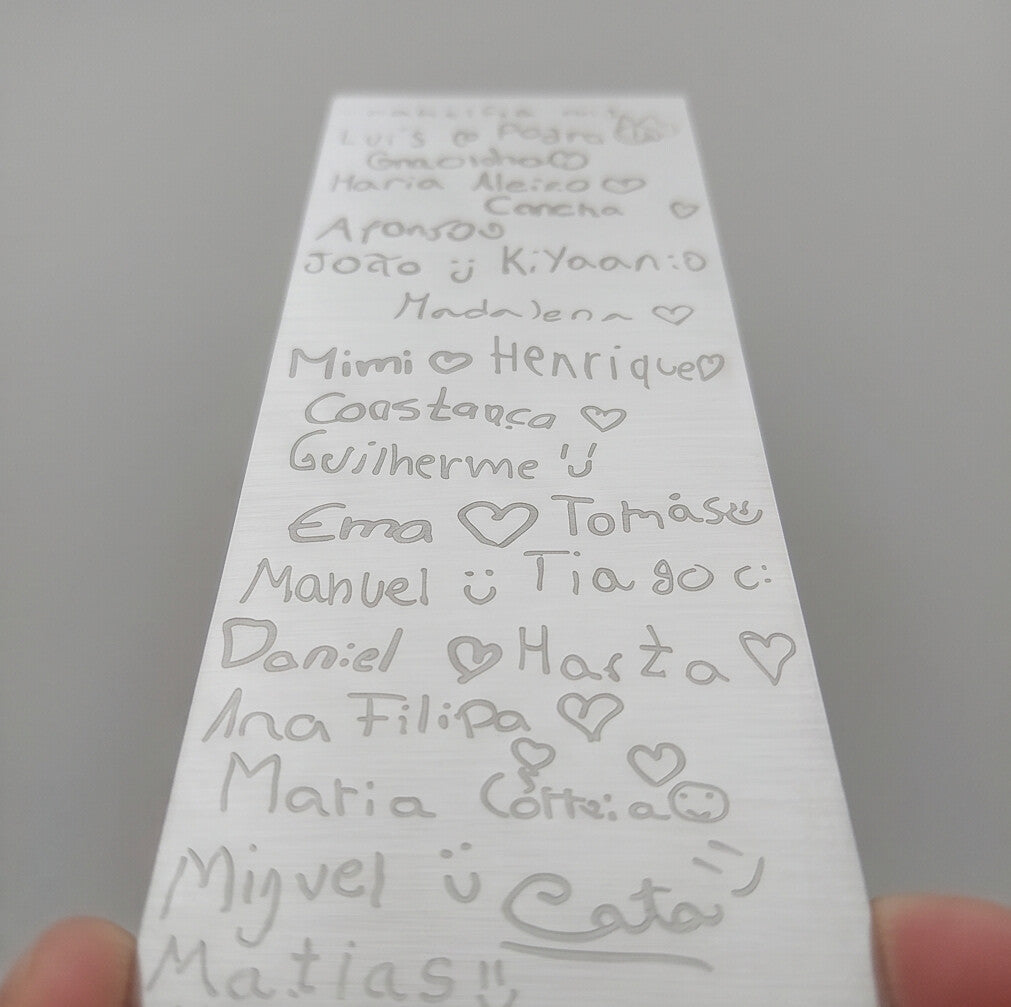 Luís Pedro
Maria Aleixo
Concha
Afonso
João Ü Kiyaan :D
Madalena
Mimi ♡ Henrique ♡
Coastança ♡
Guilherme Ü
Ema ♡ Tomás
Manuel Ü Tiago c:
Daniel ♡ Marta ♡
Ana Filipa ♡
Maria Correia
Miguel Ü Cata
Matias